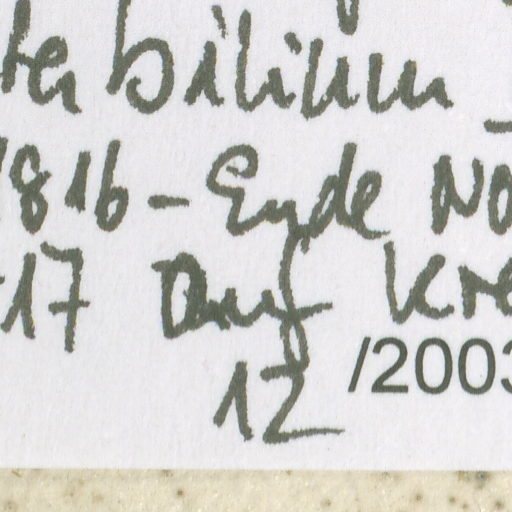 bilium -
1816 - Ende No
17 Auf Kre
12 /2003